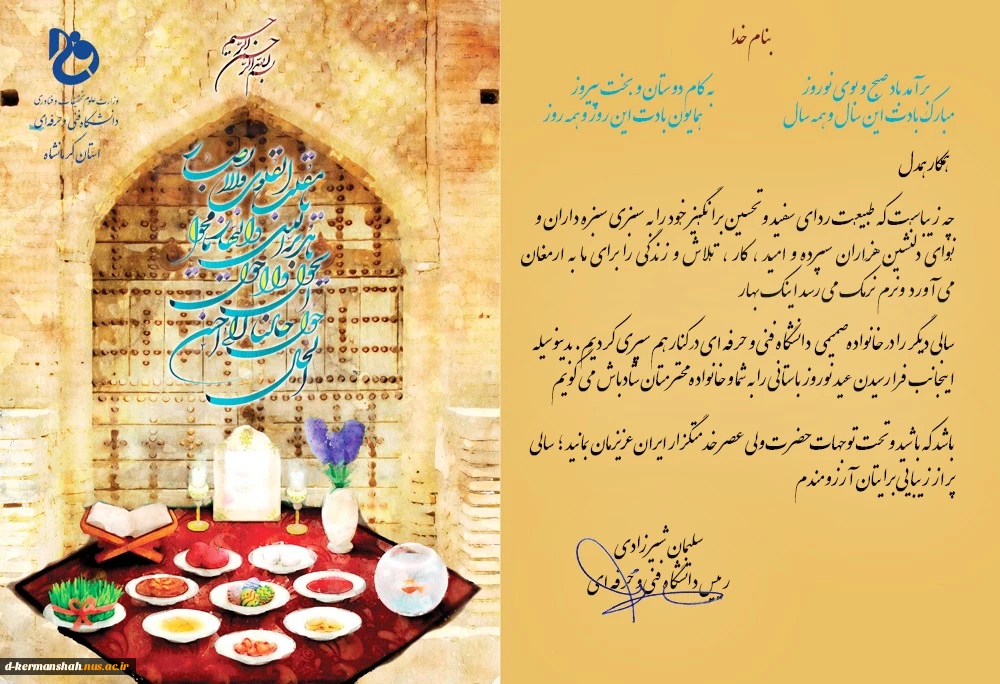 بسم الله الرحمن الرحیم
وزارت علوم تحقیقات و فناوری
دانشگاه فنی و حرفه ای
استان کرمانشاه
یا مقلب القلوب والابصار
یا مدبر اللیل والنهار
یا محول الحول والاحوال
حول حالنا الی احسن الحال
d-kermanshah.nus.ac.ir
بنام خدا
برآمد باد صبح و بوی نوروز به کام دوستان و بخت پیروز
مبارک بادت این سال و همه سال همایون بادت این روز و همه روز
همکار همدل
چه زیباست که طبیعت ردای سفید و تحسین برانگیز خود را به سبزی سبزه داران و
نوای دلنشین هزاران سپرده و امید ، کار ، تلاش و زندگی را برای ما به ارمغان
می آورد و نرم نرمک می رسد اینک بهار
سالی دیگر را در خانواده صمیمی دانشگاه فنی و حرفه ای در کنار هم سپری کردیم. بدینوسیله
اینجانب فرارسیدن عید نوروز باستانی را به شما و خانواده محترمتان شادباش می گویم
باشد که باشید و تحت توجهات حضرت ولی عصر خدمتگزار ایران عزیزمان بمانید ؛ سالی
پر از زیبایی برایتان آرزومندم
سلیمان شیرزادی
رئیس دانشگاه فنی و حرفه ای